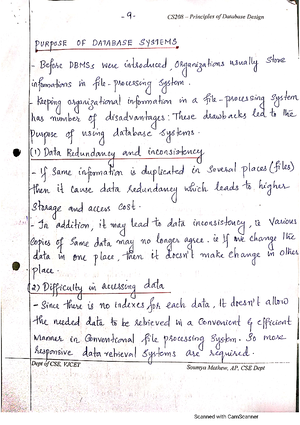 -9-
CS208 – Principles of Database Design
PURPOSE OF DATABASE SYSTEMS
- Before DBMSs were introduced, Organizations usually store
informations in file-processing System.
- Keeping organizational information in a file-processing System
has number of disadvantages: These drawbacks led to the
purpose of using database Systems.
(1) Data Redundancy and inconsistency
- If Same information is duplicated in Several places (files)
then it cause data redundancy which leads to higher
Storage and access cost.
- In addition, it may lead to data inconsistency, ie Various
Copies of Same data may no longer agree. ie If we change the
data in one place, then it doesn't make change in other
place.
(2) Difficulty in accessing data
- Since there is no indexes for each data, It doesn't allow
the needed data to be retrieved in a Convenient & efficient
manner in Conventional file processing System. So more
responsive data retrieval Systems are required.
Dept of CSE, VJCET
Soumya Mathew, AP, CSE Dept
Scanned with CamScanner